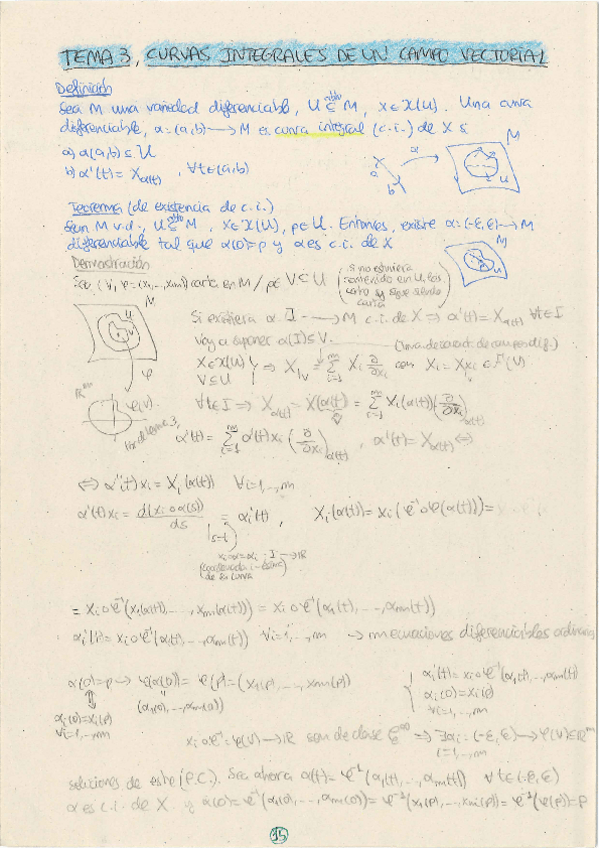 TEMA 3, CURVAS INTEGRALES DE UN CAMPO VECTORIAL
Definición
Sea M una variedad diferenciable, U ⊆^{abto} M, X ∈ 𝔛(U). Una curva
diferenciable, α: (a,b) → M es curva integral (c.i.) de X si
a) α(a,b) ⊆ U
b) α'(t) = X_{α(t)}, ∀t ∈ (a,b)
α
a
b
M
U
Teorema (de existencia de c.i.)
Sean M v.d., U ⊆^{abto} M, X ∈ 𝔛(U), p ∈ U. Entonces, existe α: (-ε, ε) → M
diferenciable tal que α(0) = p y α es c.i. de X
M
Demostración
Sea (V, φ = (x₁, ..., xₘ)) carta en M / p ∈ V ⊆ U
(si no estuviera contenido en U, los corto y sigue siendo carta)
M
U
V
φ
ℝᵐ
φ(V)
Si existiera α: I → M c.i. de X ⇒ α'(t) = X_{α(t)} ∀t ∈ I
Voy a suponer α(I) ⊆ V.
X ∈ 𝔛(U)
V ⊆ U
⇒ X|_V = Σ_{i=1}^{m} X_i ∂/∂x_i con X_i = X x_i ∈ F(V)
∀t ∈ I ⇒ X_{α(t)} = X(α(t)) = Σ_{i=1}^{m} X_i(α(t)) (∂/∂x_i)_{α(t)}
α'(t) = Σ_{i=1}^{m} α'(t)x_i (∂/∂x_i)_{α(t)}, α'(t) = X_{α(t)} ⇔
⇔ α'(t)x_i = X_i(α(t)) ∀i = 1, .., m
α'(t)x_i = d(x_i∘α(s))/ds |_{s=t} = α_i'(t), X_i(α(t)) = X_i(φ⁻¹∘φ(α(t))) =
x_i∘α = α_i : I → ℝ
(coordenada i-ésima
de la curva)
= X_i∘φ⁻¹(x₁(α(t)), ..., xₘ(α(t))) = X_i∘φ⁻¹(α₁(t), .., αₘ(t))
α_i'(t) = X_i∘φ⁻¹(α₁(t), .., αₘ(t)) ∀i = 1, .., m → m ecuaciones diferenciables ordinarias
α(0) = p → φ(α(0)) = φ(p) = (x₁(p), ..., xₘ(p))
(α₁(0), .., αₘ(0))
α_i(0) = x_i(p)
∀i = 1, .., m
α_i'(t) = X_i∘φ⁻¹(α₁(t), .., αₘ(t))
α_i(0) = x_i(p)
∀i = 1, .., m
X_i∘φ⁻¹: φ(V) → ℝ son de clase C^∞ ⇒ ∃α_i: (-ε, ε) → φ(V) ⊆ ℝᵐ
i = 1, .., m
soluciones de este (P.C.). Sea ahora α(t) = φ⁻¹(α₁(t), .., αₘ(t)) ∀t ∈ (-ε, ε)
α es c.i. de X y α(0) = φ⁻¹(α₁(0), ..., αₘ(0)) = φ⁻¹(x₁(p), ..., xₘ(p)) = φ⁻¹(φ(p)) = p
15